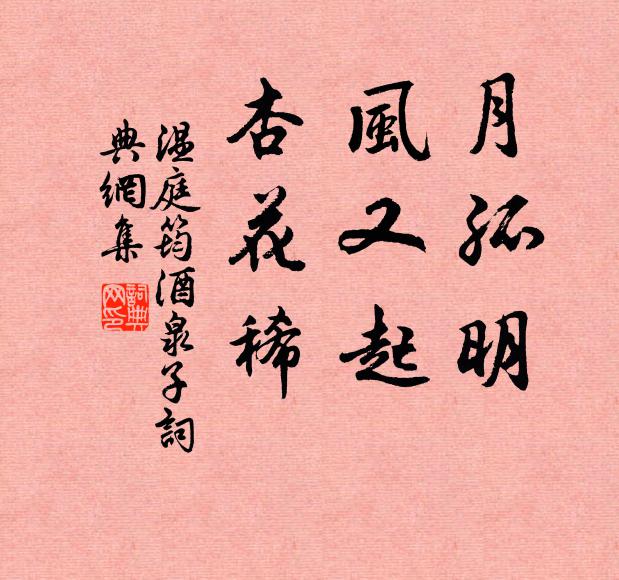 月孤明
風又起
杏花稀
温庭筠酒泉子詞
典網集
詞典網印